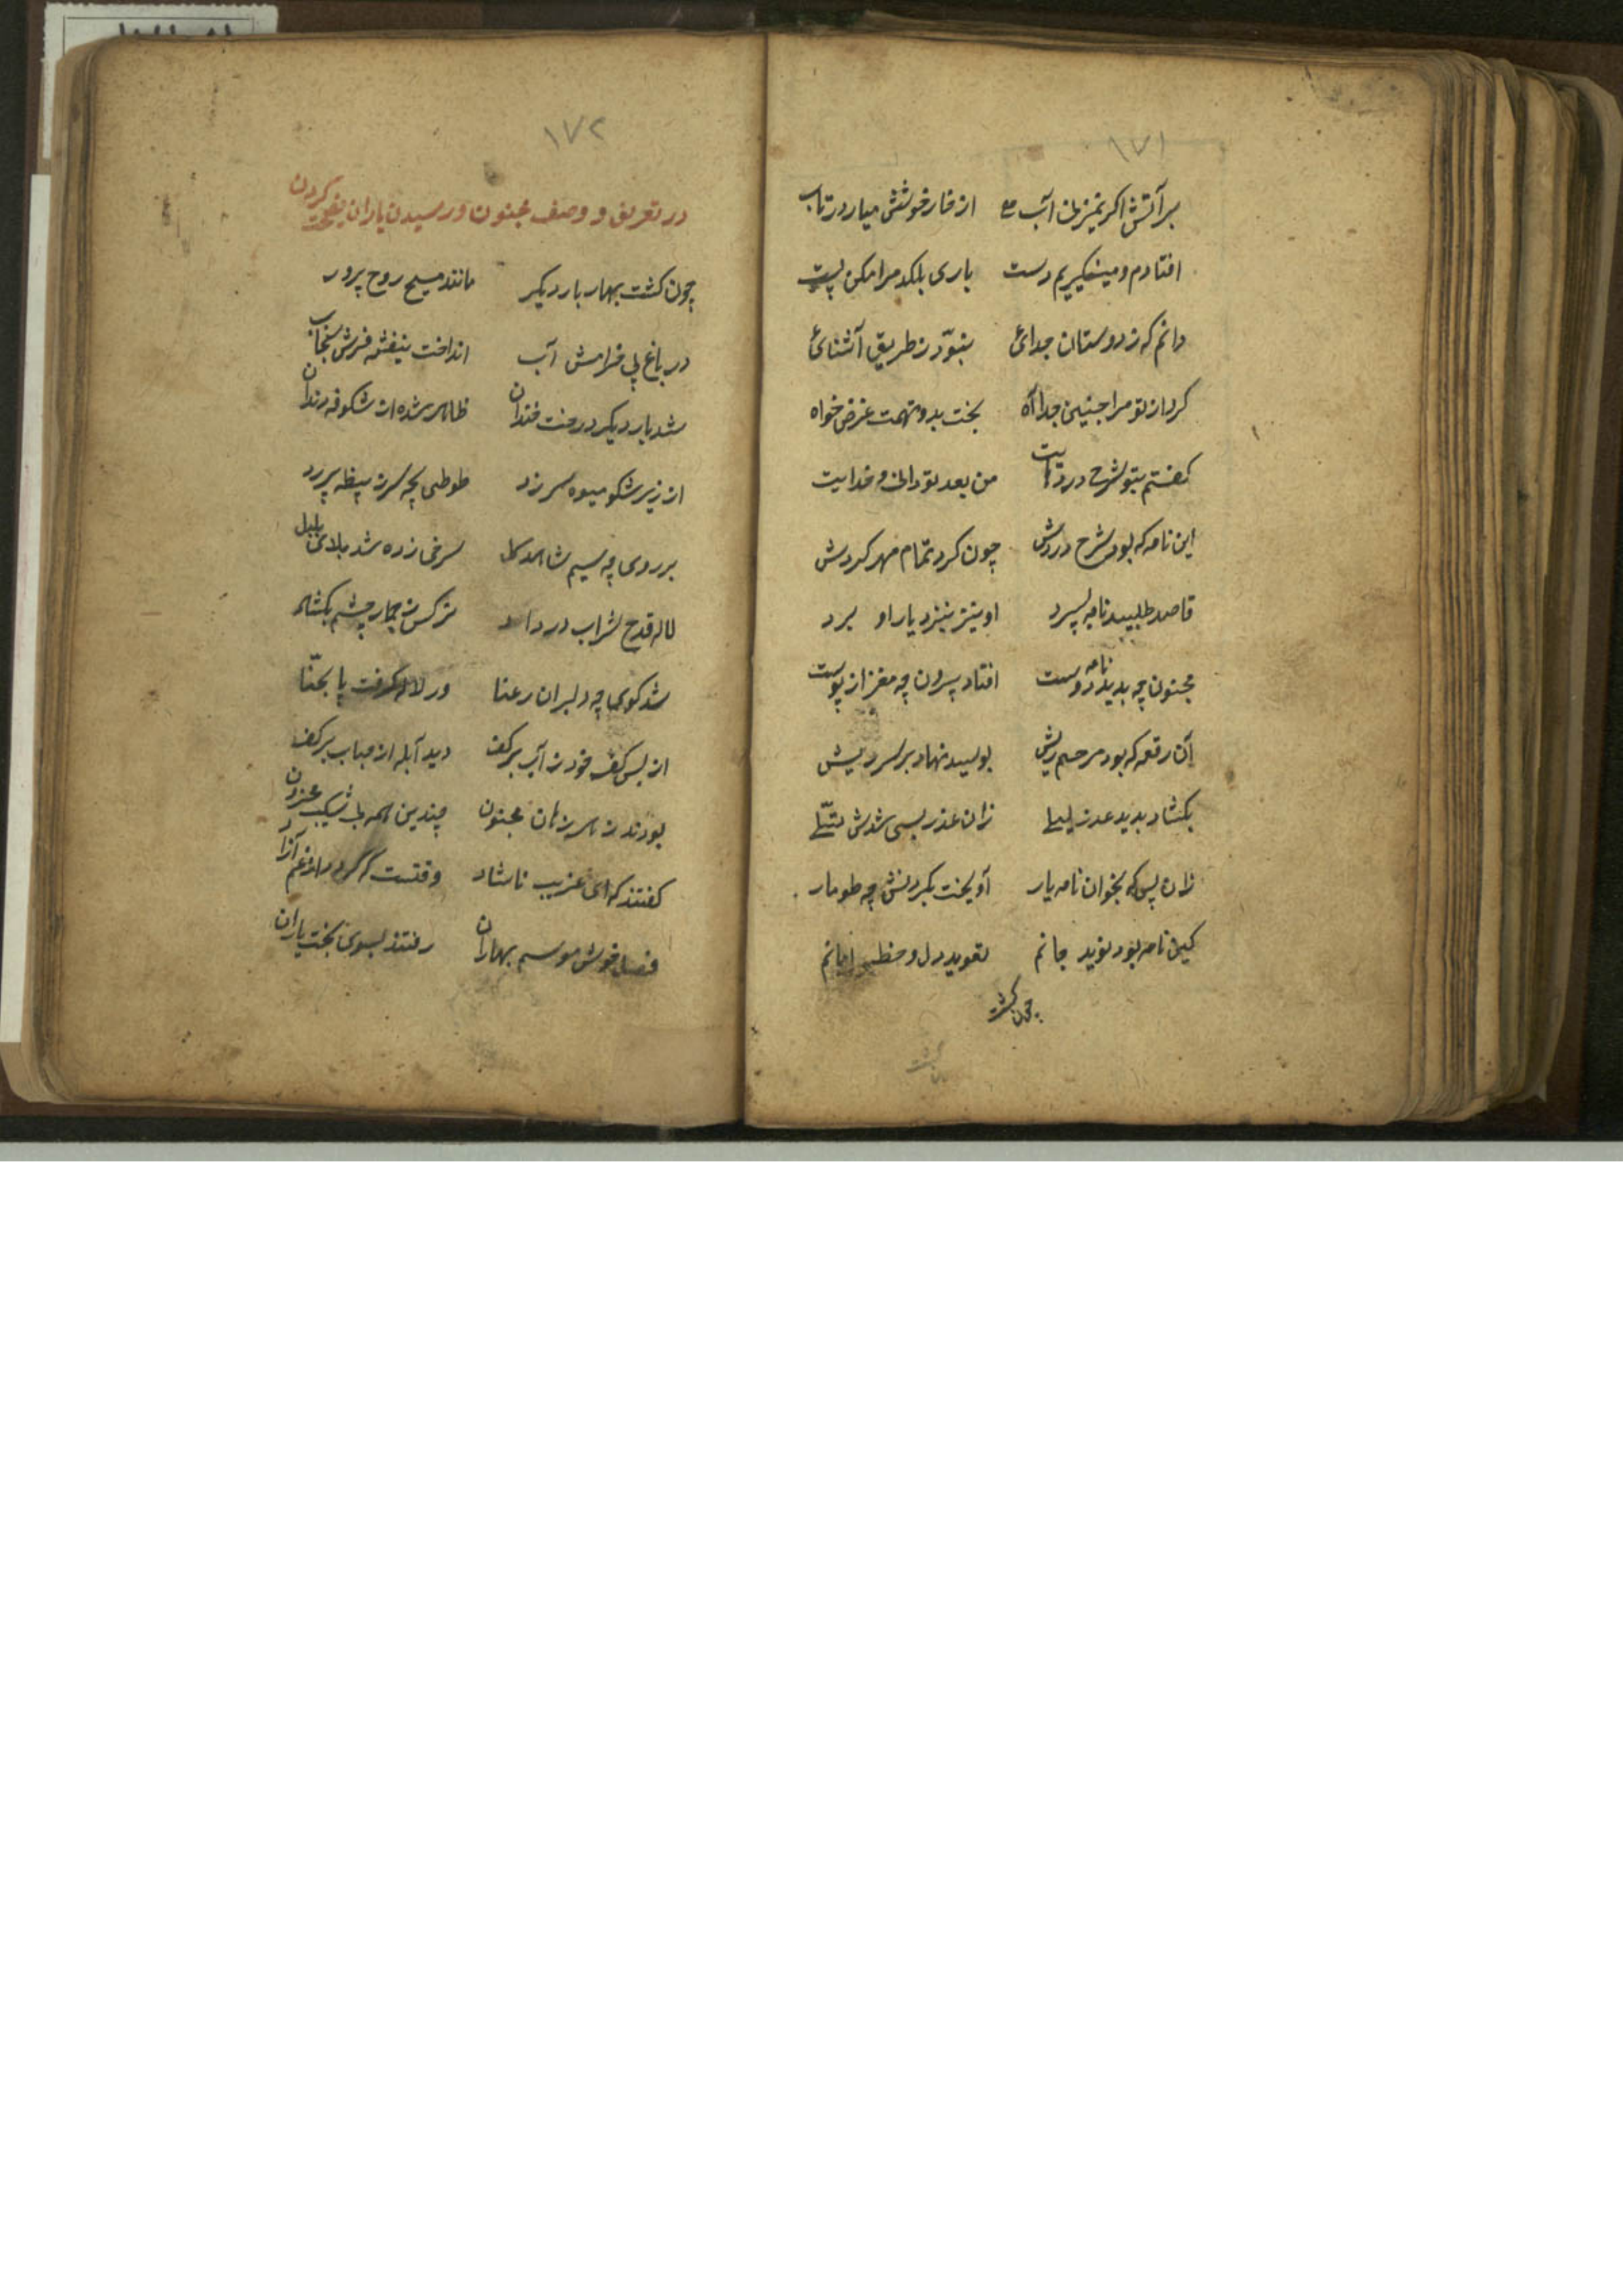 ۱۷۱
بر آتش اگر نمیزنی آب از خار خوشش میار در تاب
افتادم و میگیریم دست باری بلکد مرا مکن پست
دانم که ز دوستان جدائی نبود ز طریق آشنائی
کرد از تو مرا چنین جدا آه بخت بد و تهمت غرض خواه
کفتم بتو شرح درد من بعد تو دانی و خدایت
این نامه که بود شرح دردش چون کرد تمام مهر کردش
قاصد طلبید نامه بسپرد او نیز بنزد یار او برد
مجنون چه بدید نامه دوست افتاد برون چه مغز از پوست
آن رقعه که بود مرحم ریش بوسید نهاد بر سر ریش
بکشاد بدید عذر لیلی زان عذر بسی شدش تسلی
زان پس که بخواند نامه یار آویخت بکردنش چه طومار
کین نامه بود نوید جانم تعوید دل و خط امانم
چون کشت
۱۷۲
در تعریف و وصف مجنون و رسیدن یاران نصیحت کردن
چون کشت بهار بار دیکر مانند مسیح روح پرور
در باغ پی خرامش آب انداخت بنفشه فرش سنجاب
شد بار دیکر درخت خندان ظاهر شده از شکوفه دندان
از زیر شکوفه میوه سر زد طوطی بچه سر ز بیضه پر زد
بر روی چه سیم شاهد کل سرخی زده شد بلای بلبل
لاله قدح شراب در داد نرکس ز خمار چشم بکشاد
شد کوی چه دلبران رعنا ور لاله گرفت پا بحنا
از بس کف خود ز آب بر کف دید آبله از حباب بر کف
بودند ز مجنون چندین همه محزون
کفتند که ای غریب ناشاد وقتست که کردی از غم آزاد
فصل خوش موسم بهاران رفتند بسوی یاران